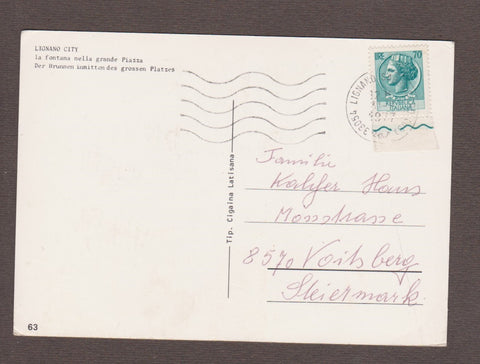 LIGNANO CITY
la fontana nella grande Piazza
Der Brunnen inmitten des grossen Platzes
70
33054 LIGNANO
1977
Tip. Cigaina Latisana
Familie
Hans
Mosstrasse
8570 Voitsberg
Steiermark.
63